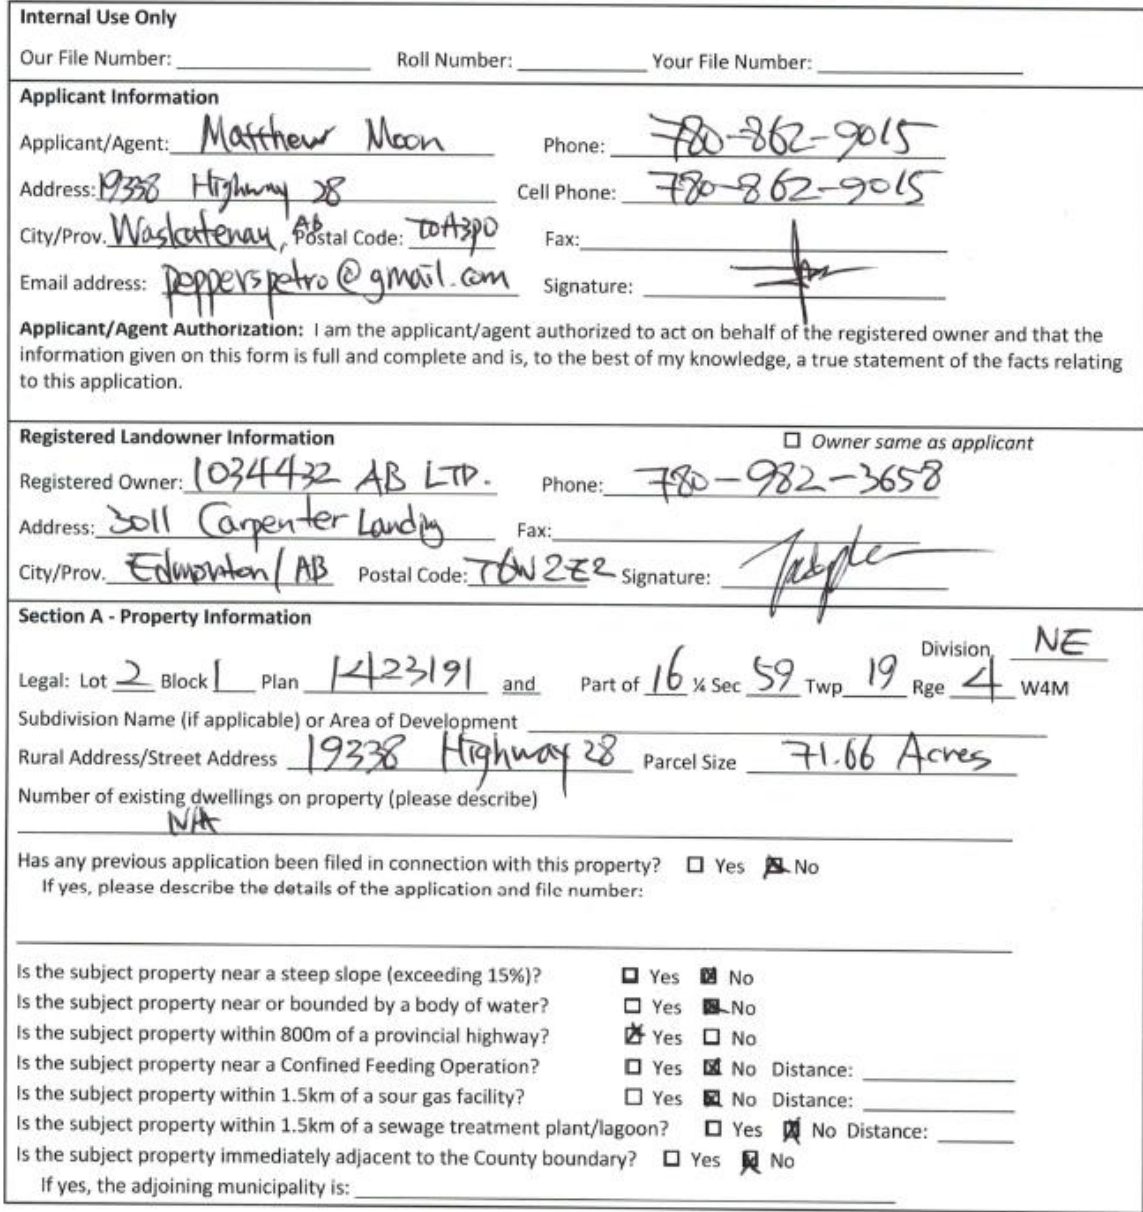 Internal Use Only
Our File Number: Roll Number: Your File Number:
Applicant Information
Applicant/Agent: Matthew Moon Phone: 780-862-9015
Address: 19338 Highway 28 Cell Phone: 780-862-9015
City/Prov. Waskatenau, AB Postal Code: T0A3P0 Fax:
Email address: pepperspetro@gmail.com Signature:
Applicant/Agent Authorization: I am the applicant/agent authorized to act on behalf of the registered owner and that the
information given on this form is full and complete and is, to the best of my knowledge, a true statement of the facts relating
to this application.
Registered Landowner Information ☐ Owner same as applicant
Registered Owner: 1034432 AB LTD. Phone: 780-982-3658
Address: 3011 Carpenter Landing Fax:
City/Prov. Edmonton/AB Postal Code: T6W2E2 Signature:
Section A - Property Information
Division NE
Legal: Lot 2 Block 1 Plan 1423191 and Part of 16 ¼ Sec 59 Twp 19 Rge 4 W4M
Subdivision Name (if applicable) or Area of Development
Rural Address/Street Address 19338 Highway 28 Parcel Size 71.66 Acres
Number of existing dwellings on property (please describe)
N/A
Has any previous application been filed in connection with this property? ☐ Yes ☒ No
If yes, please describe the details of the application and file number:
Is the subject property near a steep slope (exceeding 15%)? ☐ Yes ☒ No
Is the subject property near or bounded by a body of water? ☐ Yes ☒ No
Is the subject property within 800m of a provincial highway? ☒ Yes ☐ No
Is the subject property near a Confined Feeding Operation? ☐ Yes ☒ No Distance:
Is the subject property within 1.5km of a sour gas facility? ☐ Yes ☒ No Distance:
Is the subject property within 1.5km of a sewage treatment plant/lagoon? ☐ Yes ☒ No Distance:
Is the subject property immediately adjacent to the County boundary? ☐ Yes ☒ No
If yes, the adjoining municipality is: